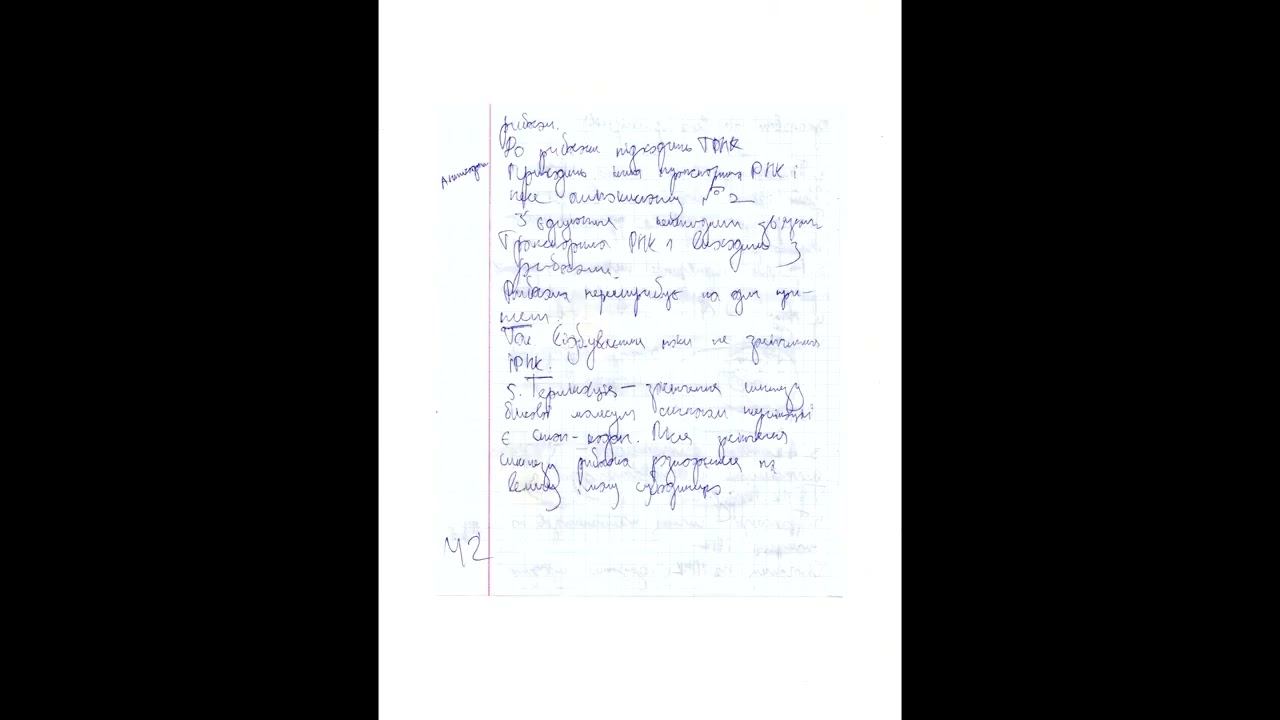 рибосом.
До рибосоми підходить ТРНК
Приходить інша транспортна РНК і
несе амінокислоту № 2
З'єднуються пептидним зв'язком
Транспортна РНК 1 виходить з
рибосоми.
Рибосома перестрибує на один три-
плет.
Так відбувається поки не закінчиться
іРНК.
5. Термінація — закінчення синтезу
білкової молекули сигналом термінації
є стоп-кодон. Після закінчення
синтезу рибосома розпадається на
велику і малу субодиницю.
42